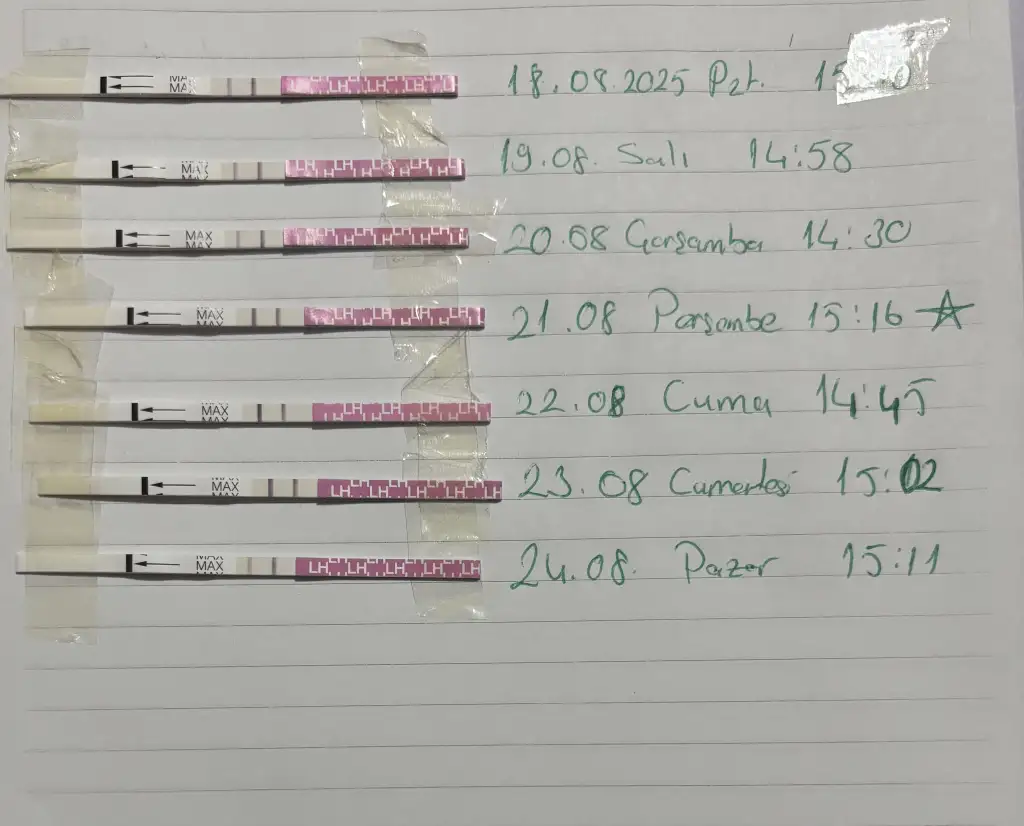 MAX MAX LH LH LH LH 18.08.2025 Pzt.
MAX MAX LH LH LH LH 19.08. Salı 14:58
MAX MAX LH LH LH LH 20.08 Çarşamba 14:30
MAX MAX LH LH LH LH 21.08 Perşembe 15:16
MAX MAX LH LH LH LH 22.08 Cuma 14:45
MAX MAX LH LH LH LH 23.08 Cumartesi 15:02
MAX MAX LH LH LH LH LH 24.08. Pazar 15:11